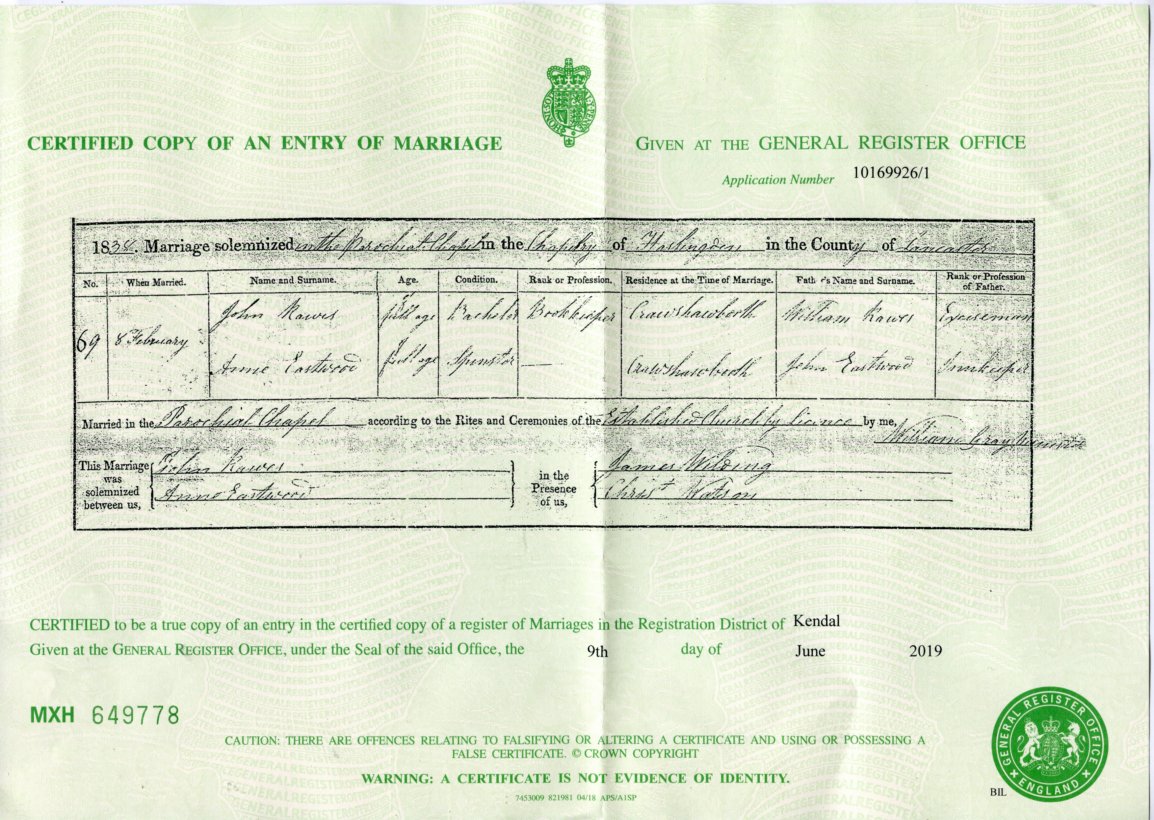 CERTIFIED COPY OF AN ENTRY OF MARRIAGE
GIVEN AT THE GENERAL REGISTER OFFICE
Application Number 10169926/1
1838. Marriage solemnized in the Parochial Chapel in the Chapelry of Haslingden in the County of Lancaster
No. When Married. Name and Surname. Age. Condition. Rank or Profession. Residence at the Time of Marriage. Father's Name and Surname. Rank or Profession of Father.
69 8 February John Rawes full age Bachelor Bookkeeper Crawshawbooth William Rawes Exciseman
Anne Eastwood full age Spinster — Crawshawbooth John Eastwood Innkeeper
Married in the Parochial Chapel according to the Rites and Ceremonies of the Established Church by licence by me,
William Gray
This Marriage was solemnized between us, John Rawes
Anne Eastwood
in the Presence of us, James Wilding
Christr Watson
CERTIFIED to be a true copy of an entry in the certified copy of a register of Marriages in the Registration District of Kendal
Given at the GENERAL REGISTER OFFICE, under the Seal of the said Office, the 9th day of June 2019
MXH 649778
CAUTION: THERE ARE OFFENCES RELATING TO FALSIFYING OR ALTERING A CERTIFICATE AND USING OR POSSESSING A
FALSE CERTIFICATE. © CROWN COPYRIGHT
WARNING: A CERTIFICATE IS NOT EVIDENCE OF IDENTITY.
7453009 821981 04/18 APS/A1SP
BIL
GENERAL REGISTER OFFICE
ENGLAND